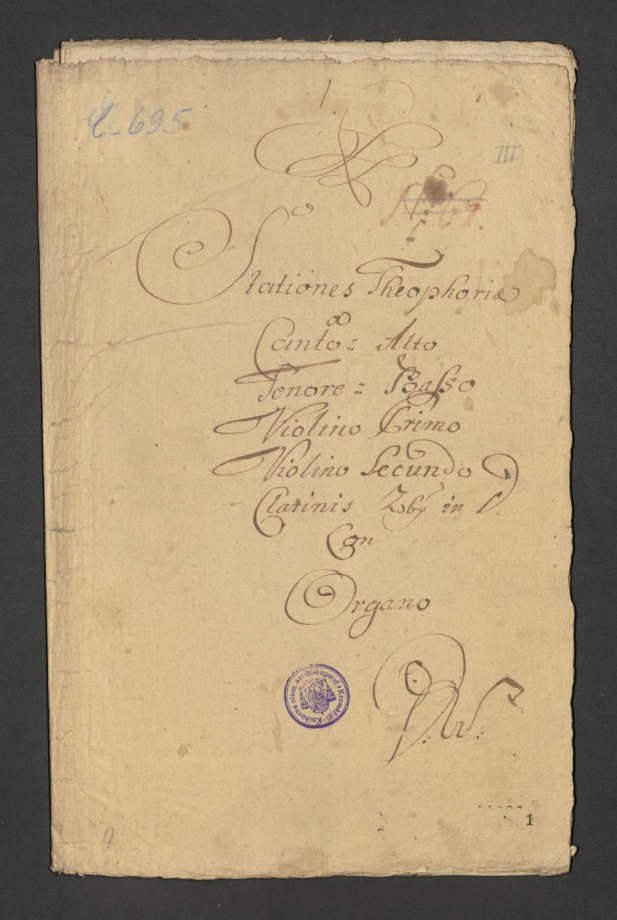 C 695
III
Nº 67.
Stationes Theophoriæ
a
Canto = Alto
Tenore = Basso
Violino Primo
Violino Secundo
Clarinis 2obꝰ in C.
Con
Organo
Knihovna olom. arcibiskupství v Kroměříži
1
9